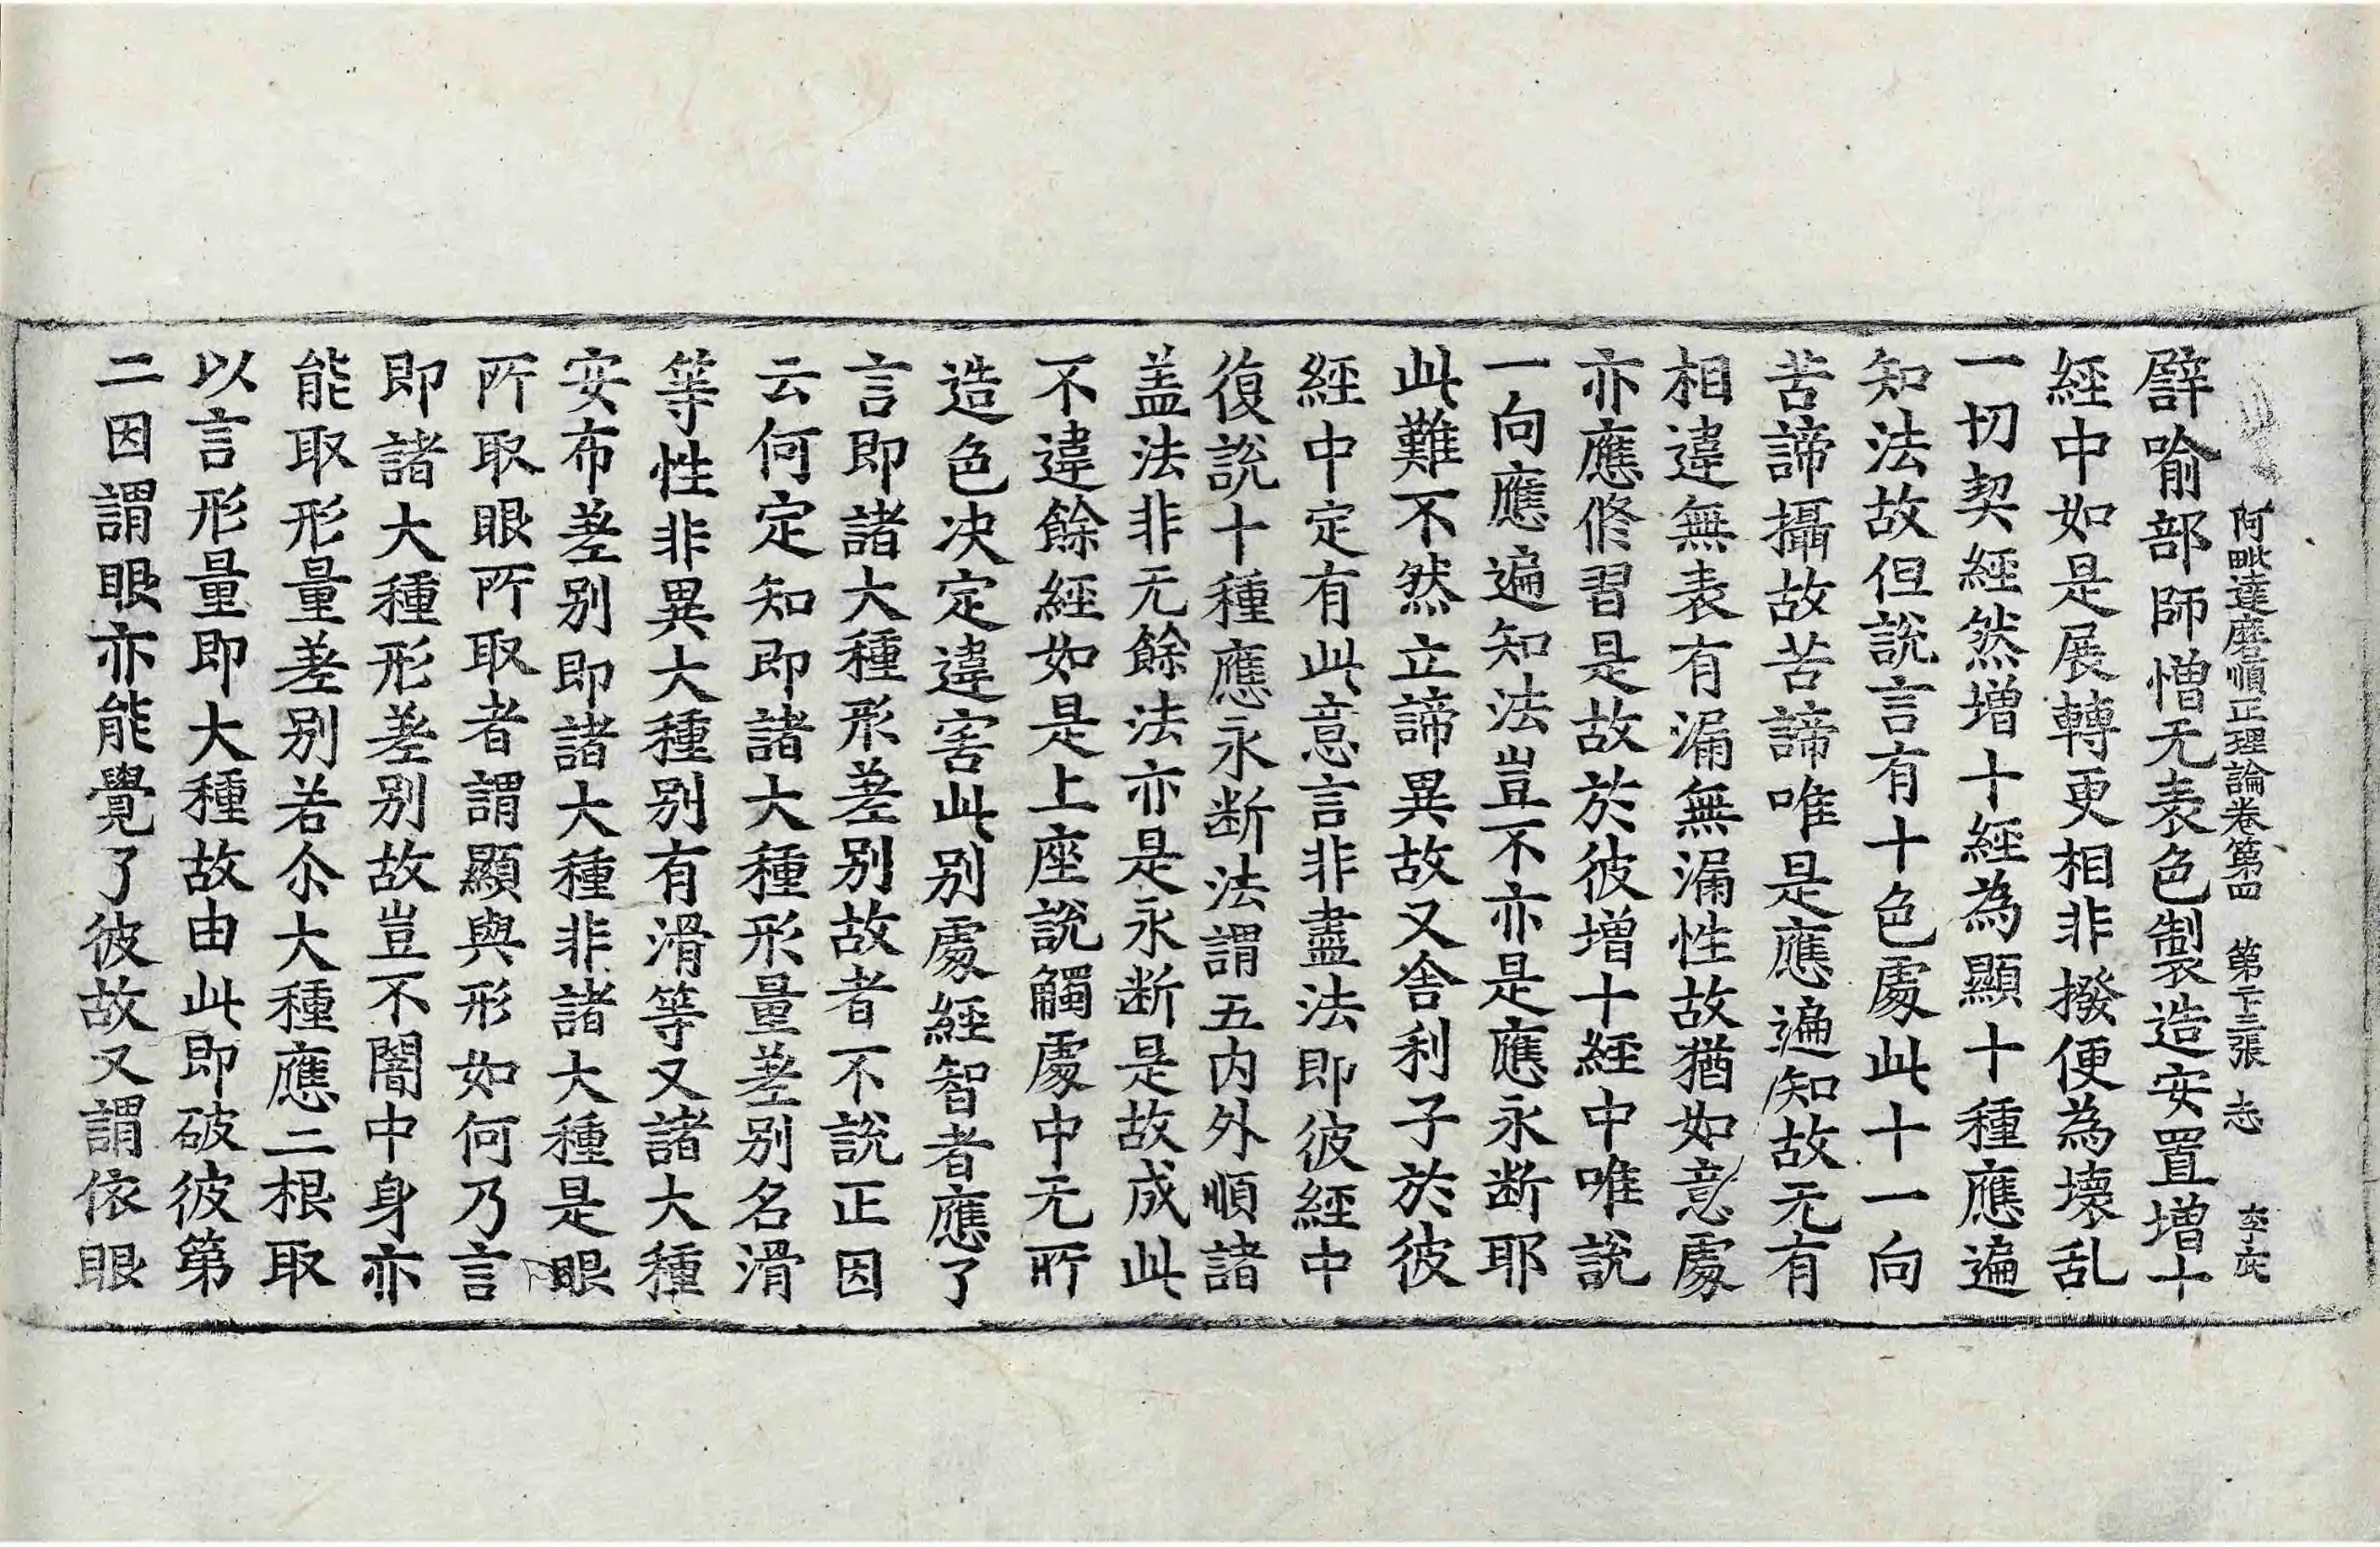 阿毗達磨順正理論卷第四 第二十三張 志 李㝎
譬喻部師憎无表色製造安置增十
經中如是展轉更相非撥便為壞乱
一切契經然增十經為顯十種應遍
知法故但說言有十色處此十一向
苦諦攝故苦諦唯是應遍知故无有
相違無表有漏無漏性故猶如意處
亦應修習是故於彼增十經中唯說
一向應遍知法豈不亦是應永断耶
此難不然立諦異故又舍利子於彼
經中定有此意言非盡法即彼經中
復說十種應永断法謂五内外順諸
盖法非无餘法亦是永断是故成此
不違餘經如是上座說觸處中无所
造色决定違害此别處經智者應了
言即諸大種形差别故者不說正因
云何定知即諸大種形量差别名滑
等性非異大種别有滑等又諸大種
安布差别即諸大種非諸大種是眼
所取眼所取者謂顯與形如何乃言
即諸大種形差别故豈不闇中身亦
能取形量差别若尒大種應二根取
以言形量即大種故由此即破彼第
二因謂眼亦能覺了彼故又謂依眼